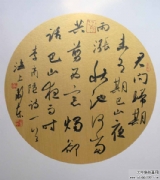 君问归期
未有期巴山夜
雨涨秋池何当
共剪西窗烛却
话巴山夜雨时
李商隐诗一首